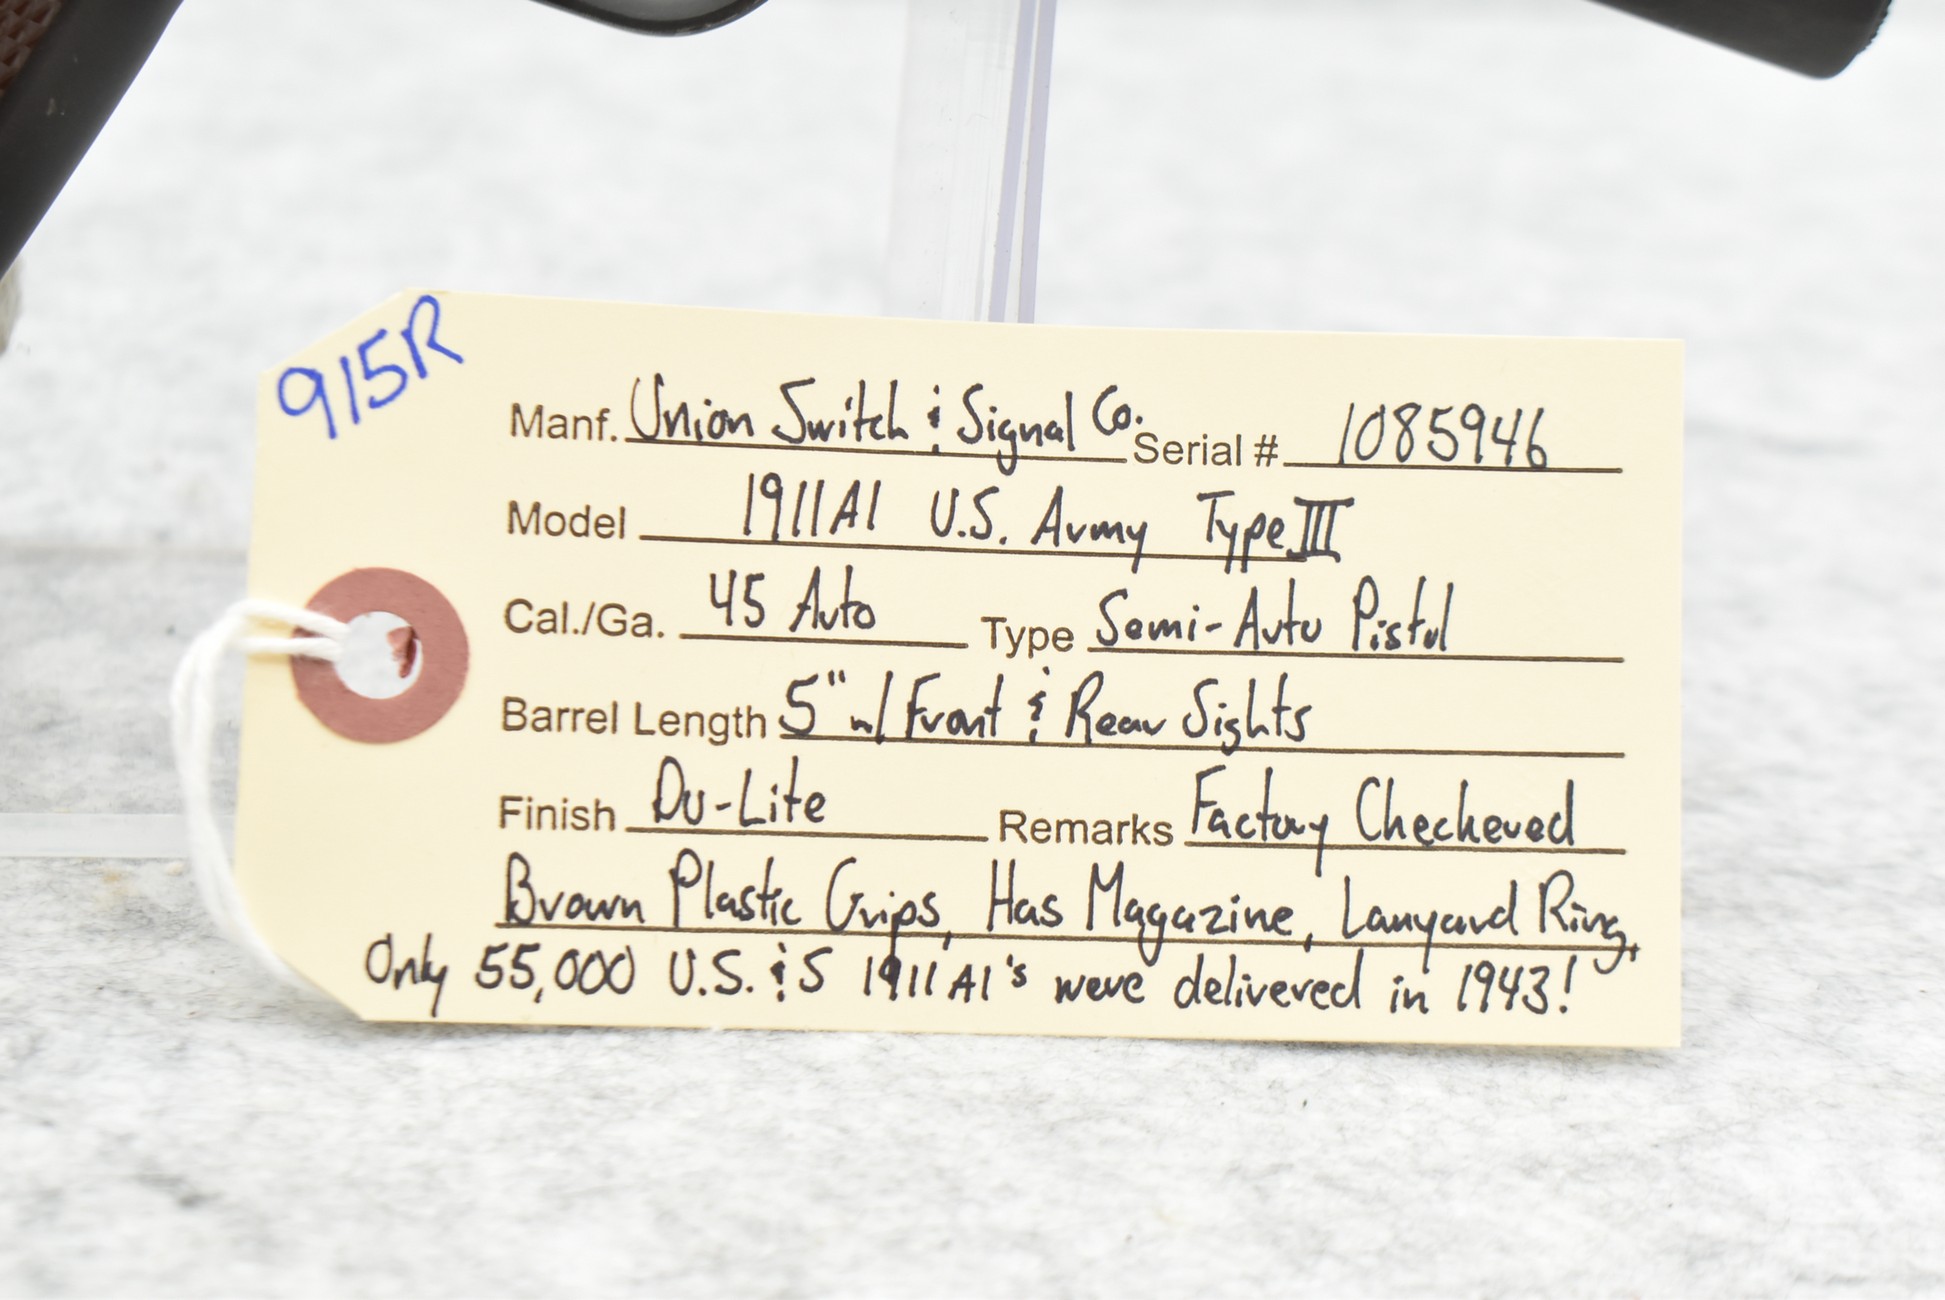 915R
Manf. Union Switch & Signal Co. Serial # 1085946
Model 1911A1 U.S. Army Type III
Cal./Ga. 45 Auto Type Semi-Auto Pistol
Barrel Length 5" w/ Front & Rear Sights
Finish Du-Lite Remarks Factory Checkered
Brown Plastic Grips, Has Magazine, Lanyard Ring,
Only 55,000 U.S. & S 1911A1's were delivered in 1943!